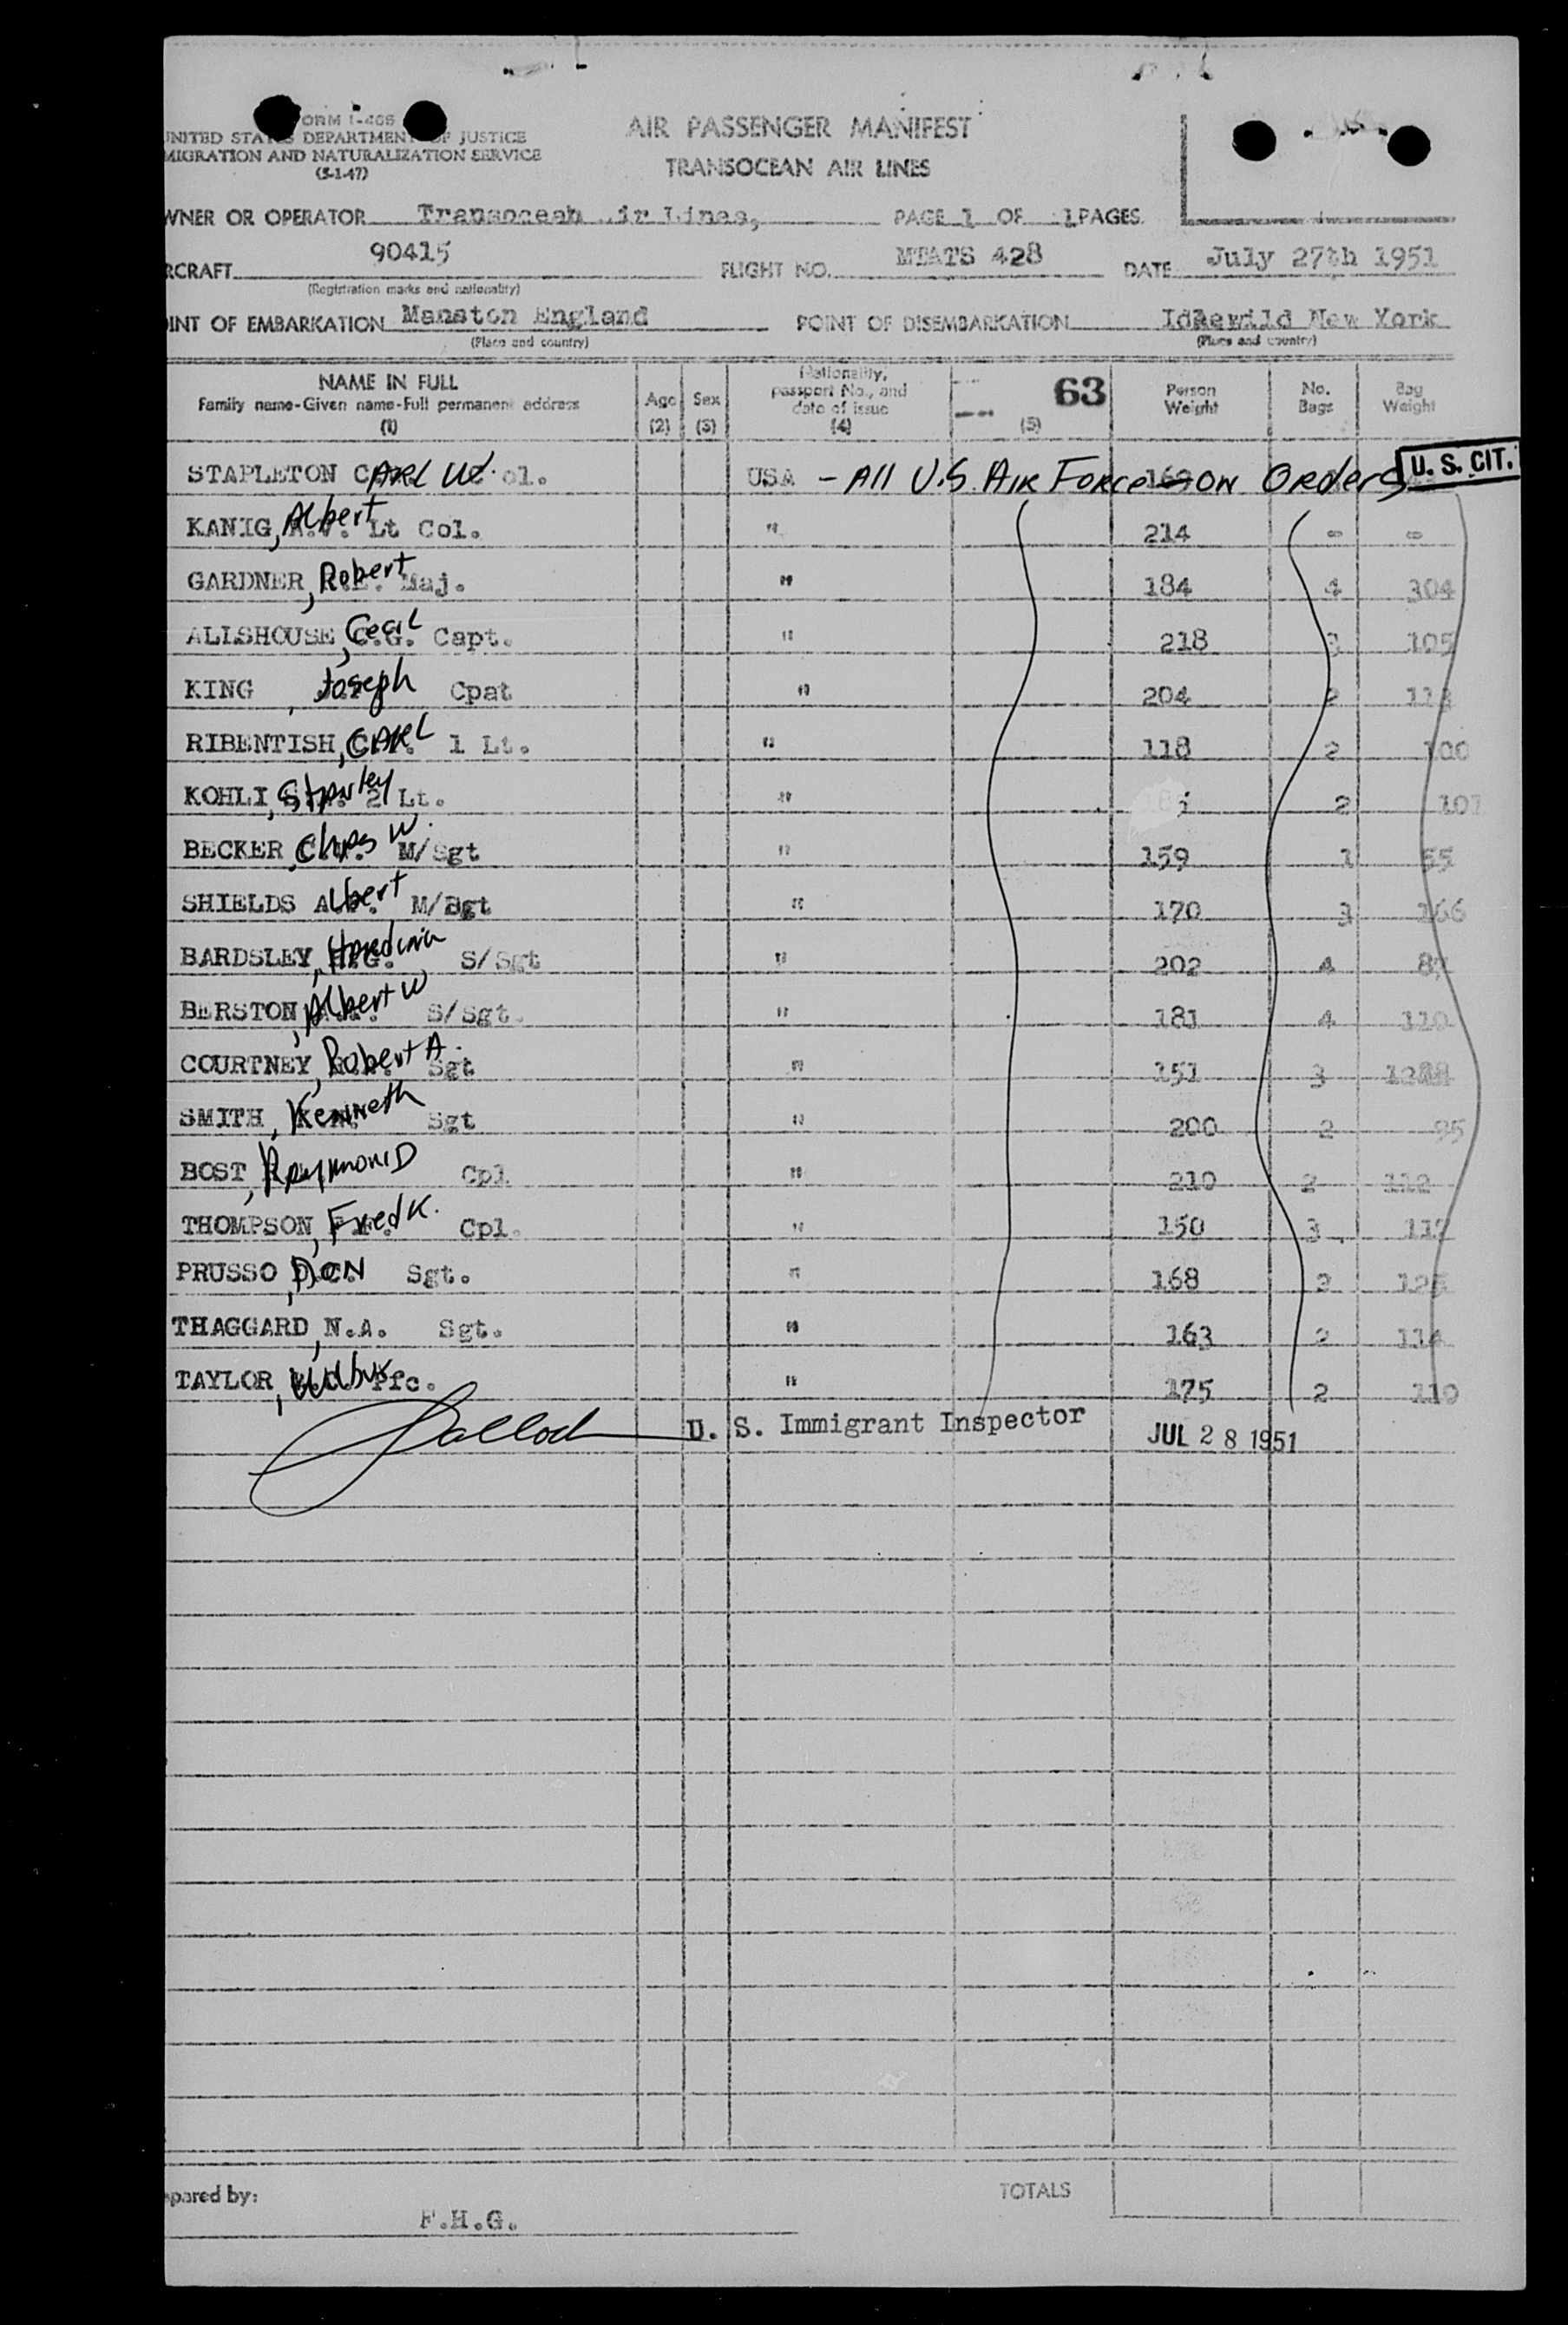 FORM I-466
UNITED STATES DEPARTMENT OF JUSTICE
MIGRATION AND NATURALIZATION SERVICE
(5-1-47)
AIR PASSENGER MANIFEST
TRANSOCEAN AIR LINES
WNER OR OPERATOR Transoceah Air Lines, PAGE 1 OF 1 PAGES.
RCRAFT 90415 FLIGHT NO. MTATS 428 DATE July 27th 1951
(Registration marks and nationality)
INT OF EMBARKATION Manston England POINT OF DISEMBARKATION Idlewild New York
(Place and country) (Place and country)
NAME IN FULL Age Sex Nationality, passport No., and date of issue 63 Person Weight No. Bags Bag Weight
Family name-Given name-Full permanent address
(1) (2) (3) (4) (5)
STAPLETON CARL W. Col. USA - All U.S. AIR FORCE - ON Orders U. S. CIT.
KANIG, Albert Lt Col. " 214 - -
GARDNER, Robert Maj. " 184 4 304
ALLSHOUSE, Cecil C.G. Capt. " 218 3 105
KING, Joseph Cpat " 204 2
RIBENTISH, CARL 1 Lt. " 118 2 100
KOHLI, Stanley 2 Lt. " 2 107
BECKER, Chas W. M/Sgt " 159 1 55
SHIELDS Albert M/Sgt " 170 3 166
BARDSLEY, H.G. S/Sgt " 202 4
BERSTON, Albert W S/Sgt. " 181 4 110
COURTNEY, Robert A. Sgt " 151 3
SMITH, Kenneth Sgt " 200 2 95
BOST, RAYMOND Cpl " 210 2 112
THOMPSON, Fred K. Cpl. " 150 3 112
PRUSSO, DON Sgt. " 168 2
THAGGARD, N.A. Sgt. " 163 2 114
TAYLOR, Wilbur Pfc. " 175 2 110
U. S. Immigrant Inspector JUL 28 1951
pared by: F.H.G. TOTALS